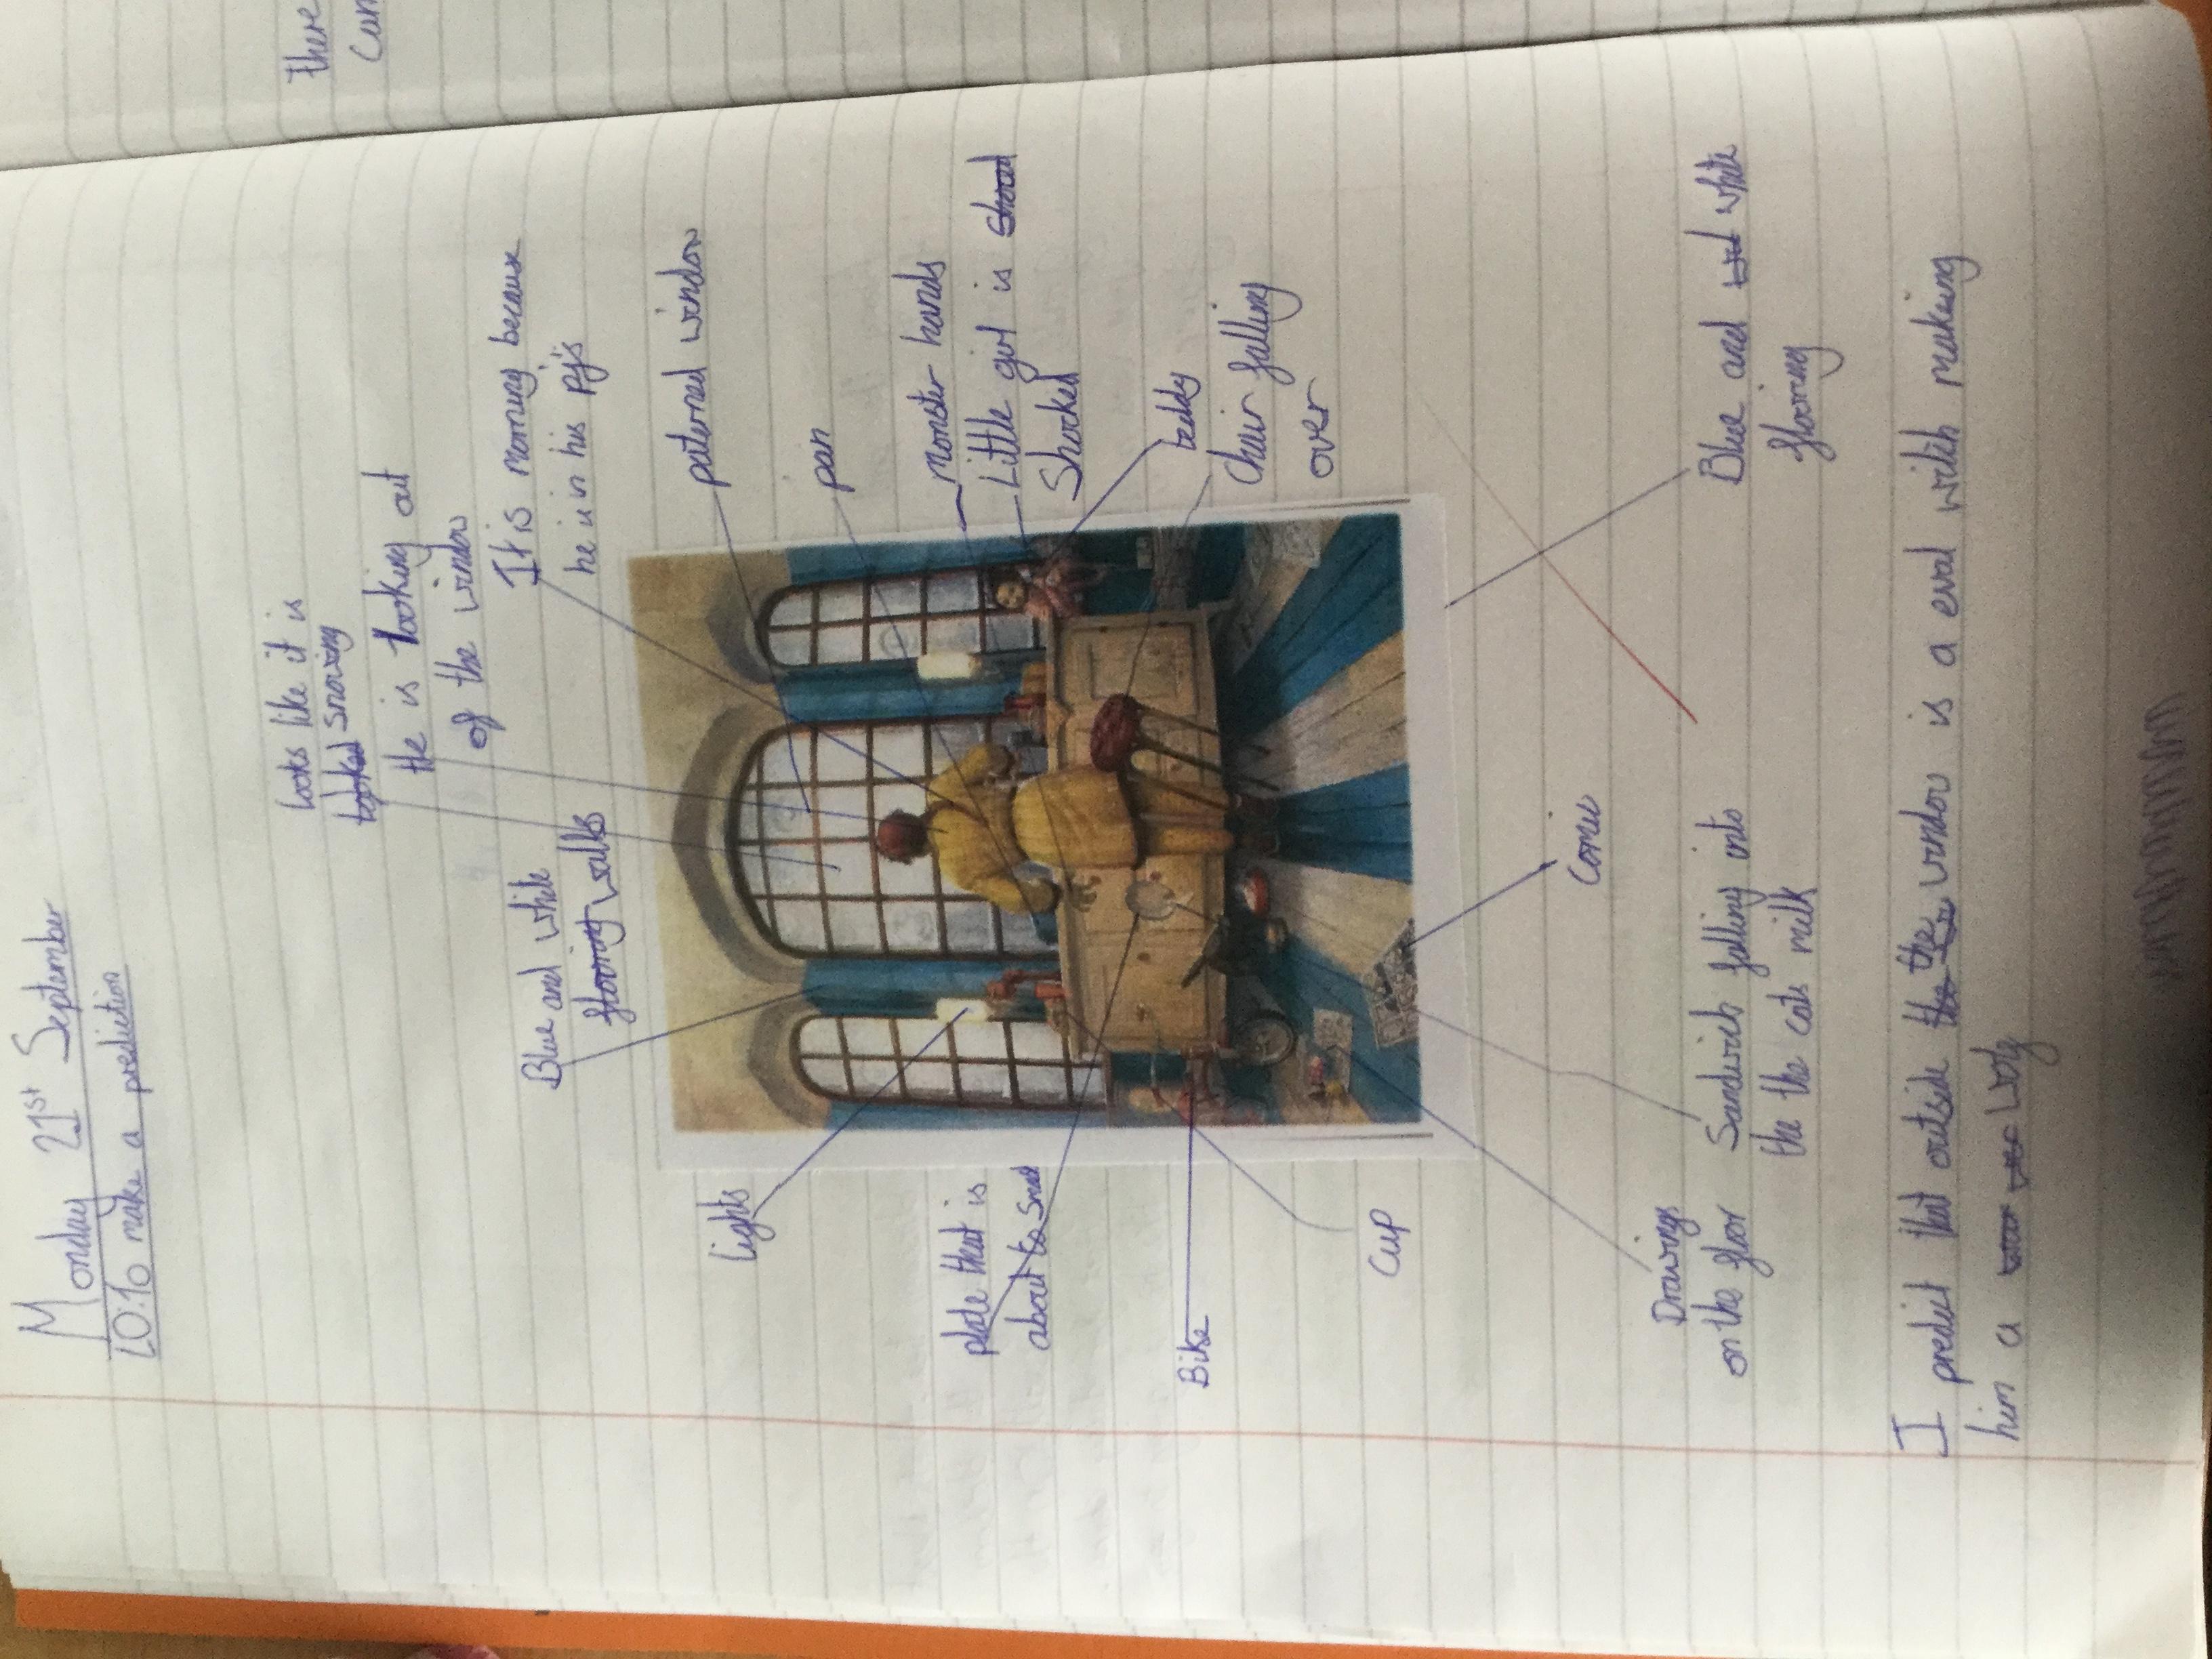 Monday 21st September
LO: To make a prediction
there
Looks like it is
looked snowing
He is looking out
of the window
It is morning because
he is in his Pj's
Blue and white
flooring walls
paterned window
pan
Lights
Monster hands
Little girl is
Shocked
plate that is
about to
teddy
Chair falling
over
Bike
Cup
Comic
Drawings
on the floor
Sandwich falling into
the the cats milk
Blue and white
flooring
I predict that outside the the window is a eval witch making
him a